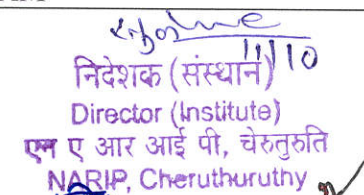 11/10
निदेशक (संस्थान)
Director (Institute)
एन ए आर आई पी, चेरुतुरुति
NARIP, Cheruthuruthy